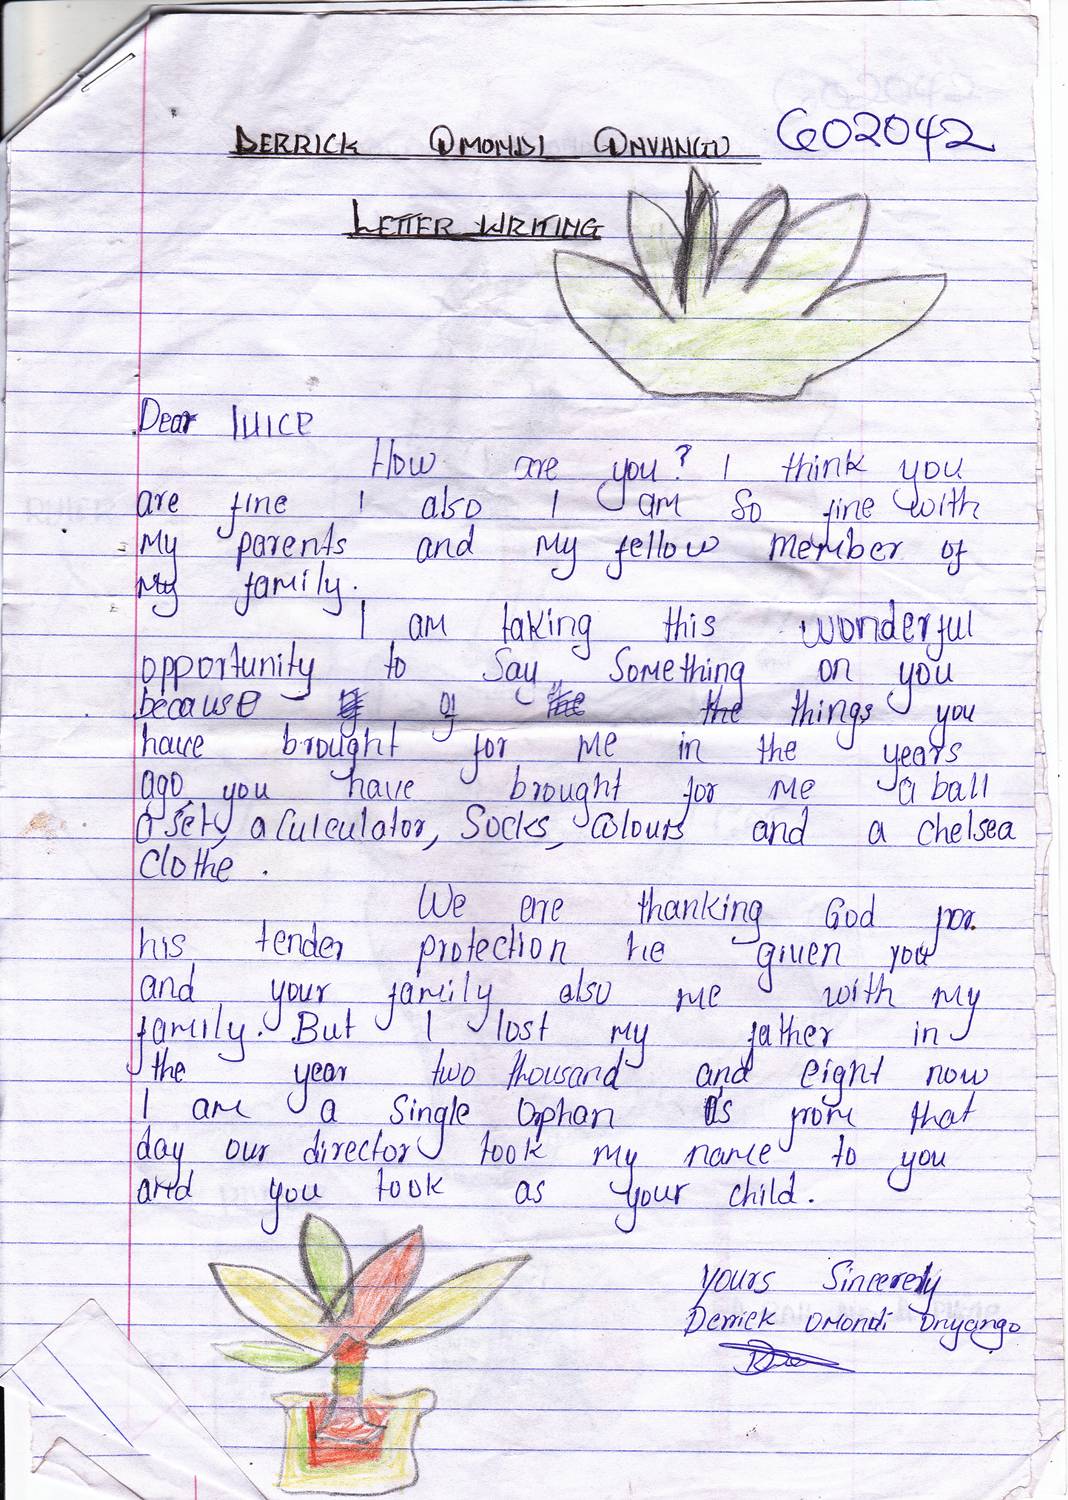 DERRICK OMONDI ONYANGO G02042
LETTER WRITING
Dear IUICE
How are you? I think you
are fine I also I am so fine with
My parents and my fellow member of
my family.
I am taking this wonderful
opportunity to say something on you
because of the things you
have brought for me in the years
ago you have brought for me a ball
a set, a Culculator, Socks, Colours and a chelsea
Clothe.
We are thanking God for
his tender protection he given you
and your family also me with my
family. But I lost my father in
the year two thousand and eight now
I am a single orphan as from that
day our director took my name to you
and you took as your child.
Yours Sincerely
Derrick Omondi Onyango